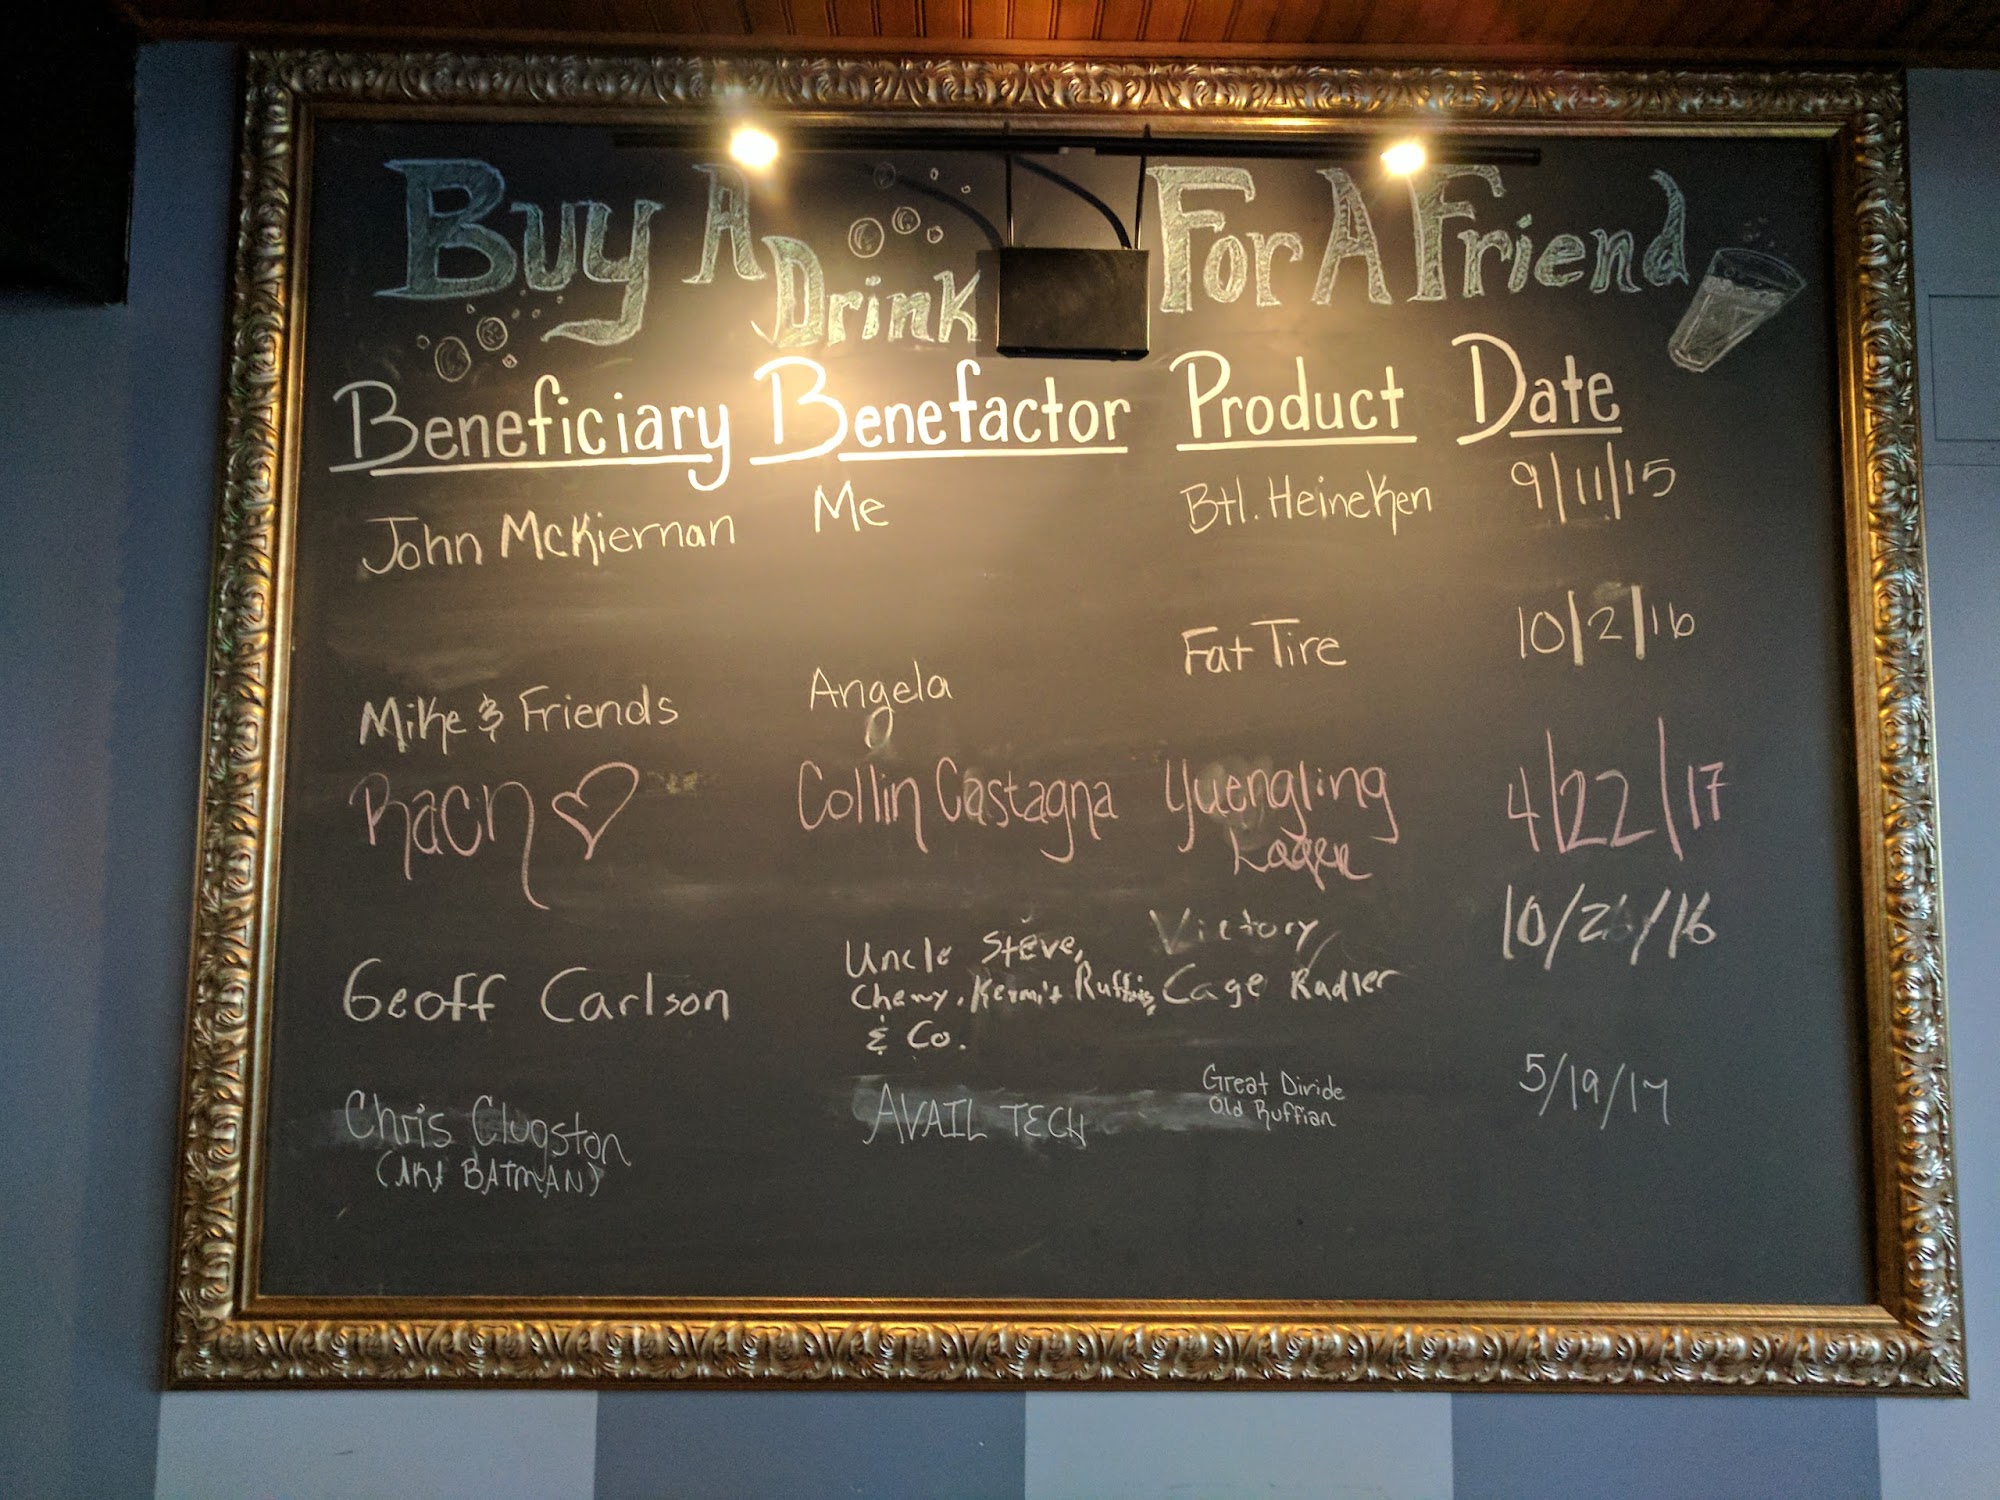 Buy A Drink For A Friend
Beneficiary Benefactor Product Date
John McKiernan Me Btl. Heineken 9/11/15
Mike & Friends Angela Fat Tire 10/2/16
Rach Collin Castagna Yuengling 4/22/17
Lager
Geoff Carlson Uncle Steve, Victory 10/26/16
Chewy, Kermit Ruffins, Cage Radler
& Co.
Chris Clugston AVAIL TECH Great Divide 5/19/17
(AKA BATMAN) Old Ruffian